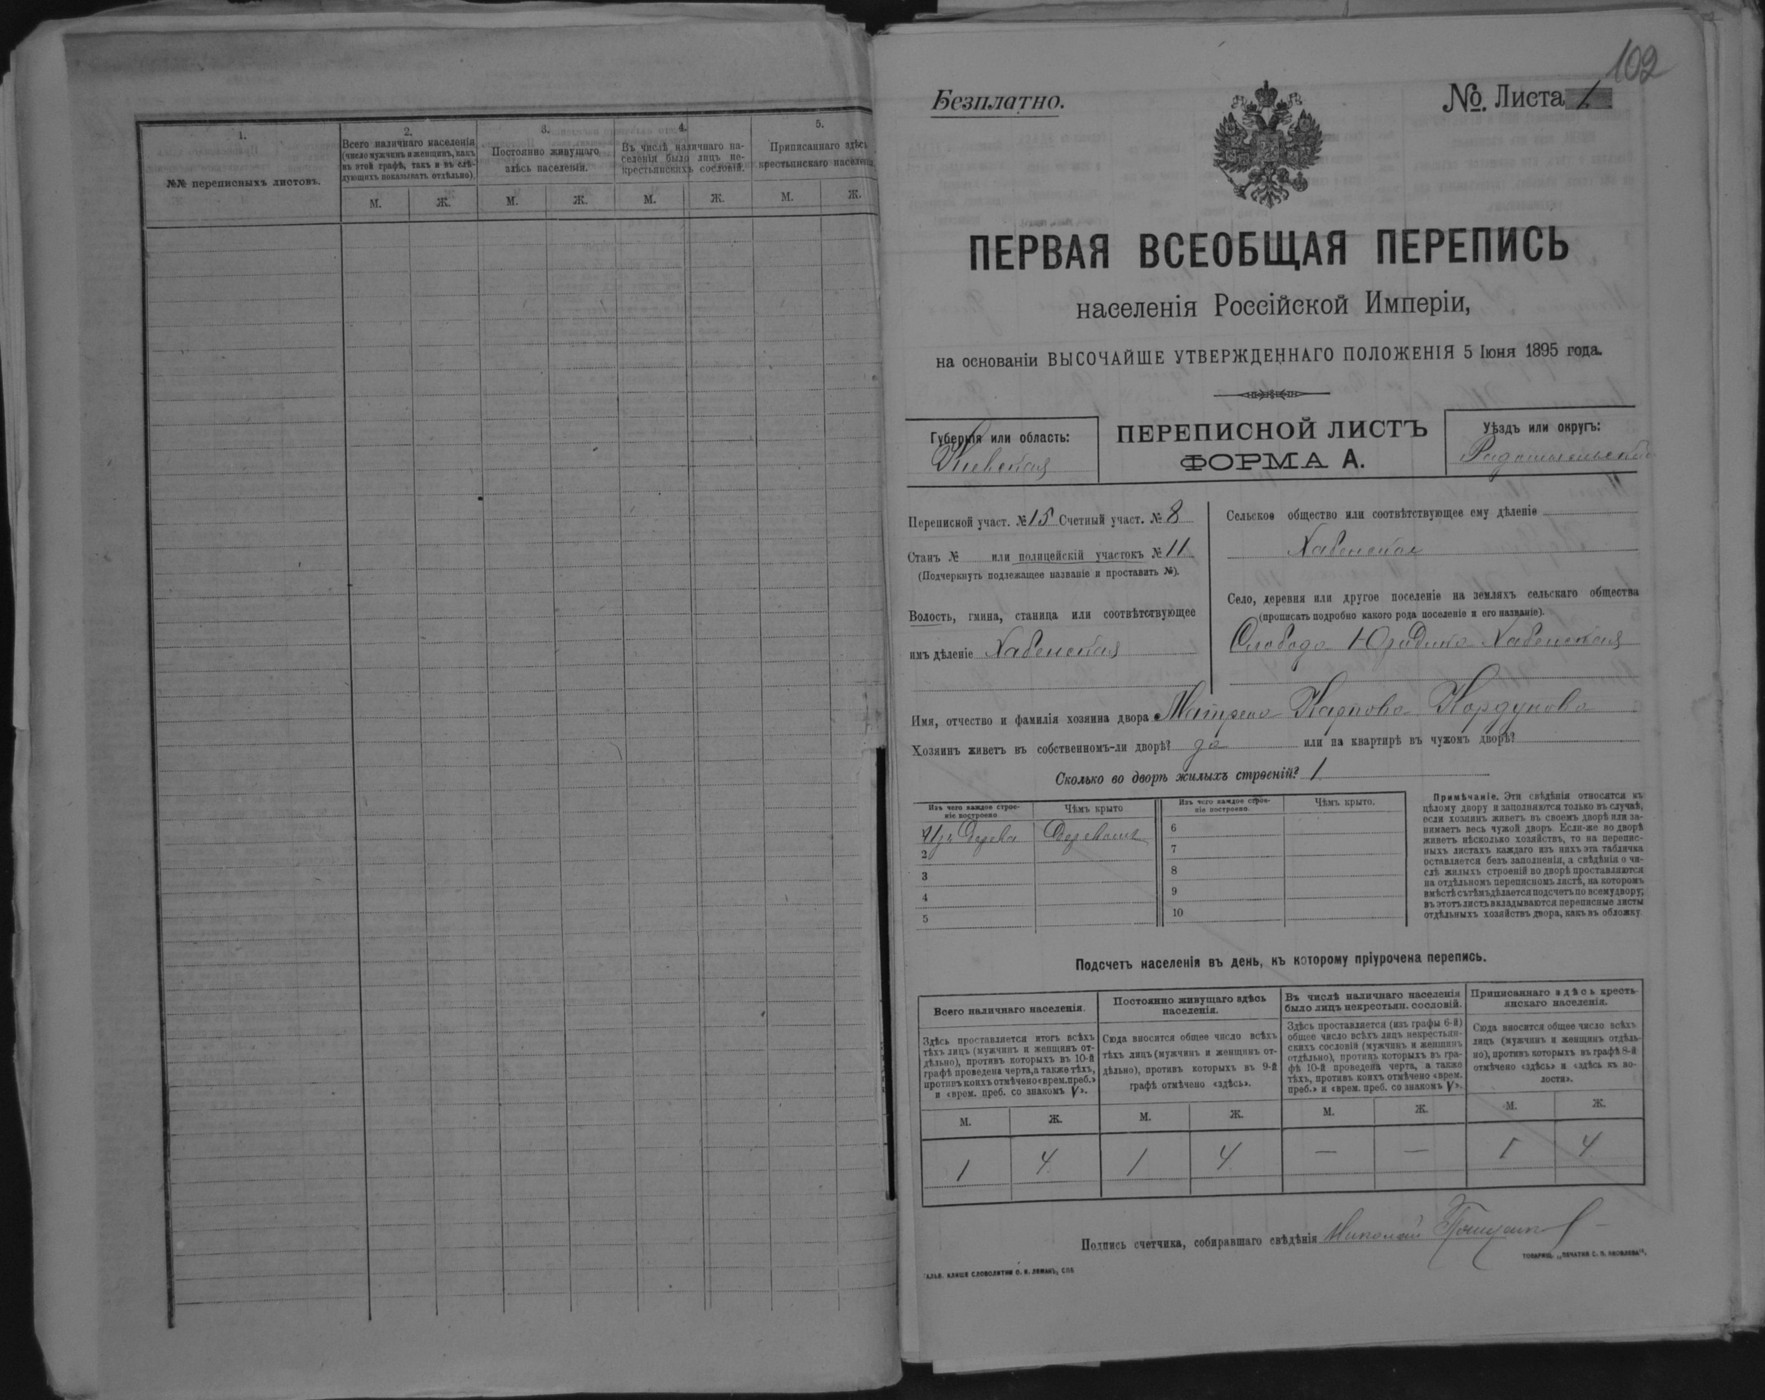 1.
2.
3.
4.
5.
№№ переписныхъ листовъ.
Всего наличнаго населенія
(число мужчинъ и женщинъ, какъ
въ этой графѣ, такъ и въ слѣ-
дующихъ показывать отдѣльно).
Постоянно живущаго
здѣсь населенія.
Въ числѣ наличнаго на-
селенія было лицъ не-
крестьянскихъ сословій.
Приписаннаго здѣсь
крестьянскаго населенія
М. Ж. М. Ж. М. Ж. М. Ж.
102
Безплатно.
№. Листа 1
ПЕРВАЯ ВСЕОБЩАЯ ПЕРЕПИСЬ
населенія Россійской Имперіи,
на основаніи ВЫСОЧАЙШЕ УТВЕРЖДЕННАГО ПОЛОЖЕНІЯ 5 Іюня 1895 года.
Губернія или область:
Кіевская
ПЕРЕПИСНОЙ ЛИСТЪ
ФОРМА А.
Уѣздъ или округъ:
Радомысльскій
Переписной участ. № 15 Счетный участ. № 8
Станъ № или полицейскій участокъ № 11
(Подчеркнуть подлежащее названіе и проставить №).
Волость, гмина, станица или соотвѣтствующее
имъ дѣленіе Хабенская
Сельское общество или соотвѣтствующее ему дѣленіе
Хабенское
Село, деревня или другое поселеніе на земляхъ сельскаго общества
(прописать подробно какого рода поселеніе и его названіе).
Слобода Хабенская
Имя, отчество и фамилія хозяина двора Матрена Карпова Кордунова
Хозяинъ живетъ въ собственномъ-ли дворѣ? да или на квартирѣ въ чужомъ дворѣ?
Сколько во дворѣ жилыхъ строеній? 1
Изъ чего каждое строе-
ніе построено
Чѣмъ крыто
Изъ чего каждое строе-
ніе построено
Чѣмъ крыто.
Изъ Дерева Деревомъ
2
3
4
5
6
7
8
9
10
Примѣчаніе. Эти свѣдѣнія относятся къ
цѣлому двору и заполняются только въ случаѣ,
если хозяинъ живетъ въ своемъ дворѣ или за-
нимаетъ весь чужой дворъ. Если-же во дворѣ
живетъ нѣсколько хозяйствъ, то на перепис-
ныхъ листахъ каждаго изъ нихъ эта табличка
оставляется безъ заполненія, а свѣдѣнія о чи-
слѣ жилыхъ строеній во дворѣ проставляются
на отдѣльномъ переписномъ листѣ, на которомъ
вмѣстѣ съ тѣмъ дѣлается подсчетъ по всему двору;
въ этотъ листъ вкладываются переписные листы
отдѣльныхъ хозяйствъ двора, какъ въ обложку
Подсчетъ населенія въ день, къ которому пріурочена перепись.
Всего наличнаго населенія.
Постоянно живущаго здѣсь
населенія.
Въ числѣ наличнаго населенія
было лицъ некрестьян. сословій.
Приписаннаго здѣсь кресть-
янскаго населенія.
Здѣсь проставляется итогъ всѣхъ
тѣхъ лицъ (мужчинъ и женщинъ от-
дѣльно), противъ которыхъ въ 10-й
графѣ проведена черта, а также тѣхъ,
противъ коихъ отмѣчено «врем. преб.»
и «врем. преб. со знакомъ V».
Сюда вносится общее число всѣхъ
тѣхъ лицъ (мужчинъ и женщинъ от-
дѣльно), противъ которыхъ въ 9-й
графѣ отмѣчено «здѣсь».
Здѣсь проставляется (изъ графы 6-й)
общее число всѣхъ лицъ некрестьян-
скихъ сословій (мужчинъ и женщинъ
отдѣльно), противъ которыхъ въ гра-
фѣ 10-й проведена черта, а также
тѣхъ, противъ коихъ отмѣчено «врем.
преб.» и «врем. преб. со знакомъ V».
Сюда вносится общее число всѣхъ
лицъ (мужчинъ и женщинъ отдѣль-
но), противъ которыхъ въ графѣ 8-й
отмѣчено «здѣсь» и «здѣсь къ во-
лости».
М. Ж. М. Ж. М. Ж. М. Ж.
1 4 1 4 — — 1 4
Подпись счетчика, собиравшаго свѣдѣнія Николай
ТОВАРИЩ. „ПЕЧАТНЯ С. П. ЯКОВЛЕВА“.
ГАЛЬВ. КЛИШЕ СЛОВОЛИТНИ О. И. ЛЕМАНЪ, СПБ